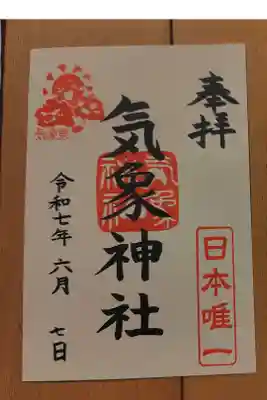 奉拝
日本唯一
気象神社
令和七年 六月 七日